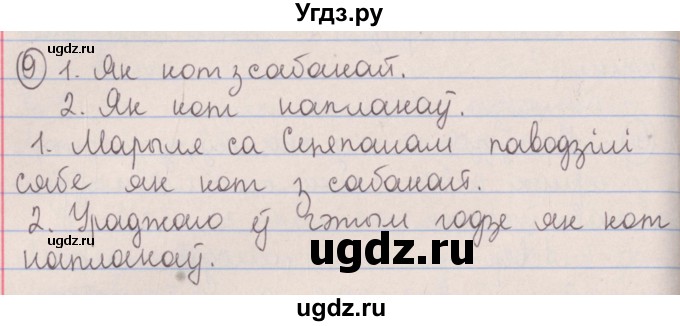 Угдз.ру
ugdz.ru ugdz.ru
9 1. Як кот з сабакай.
2. Як кот наплакаў.
ugdz.ru ugdz.ru
1. Марыля са Сцяпанам паводзілі
сябе як кот з сабакай.
ugdz.ru
2. Ураджаю ў гэтым годзе як кот
наплакаў.
ugdz.ru
ugdz.ru
ugdz.ru